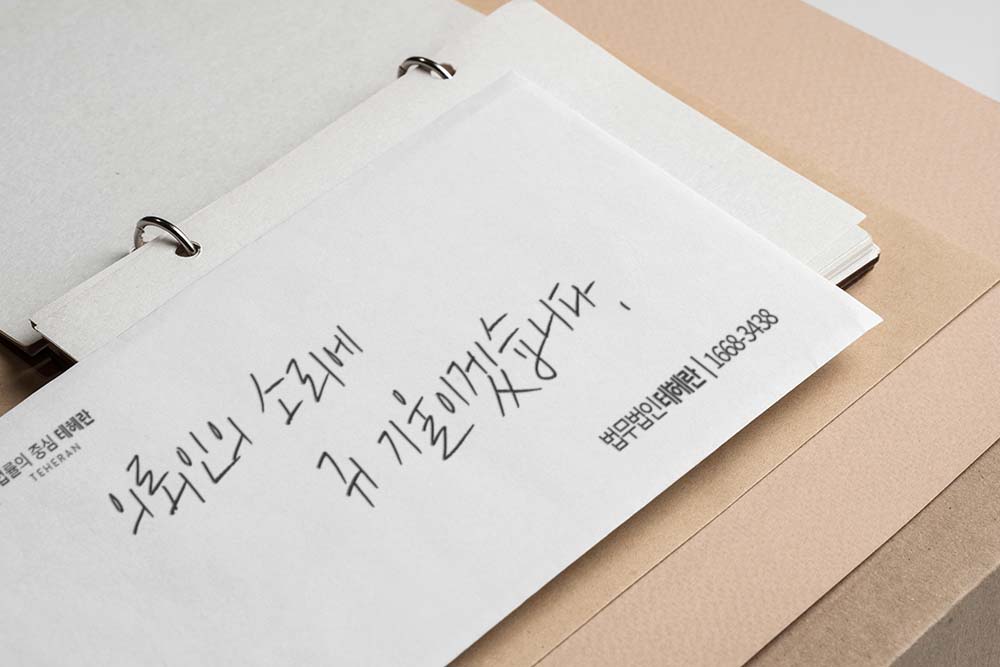 법률의 중심 테헤란
TEHERAN
의뢰인의 소리에
귀 기울이겠습니다.
법무법인테헤란 | 1668-3438